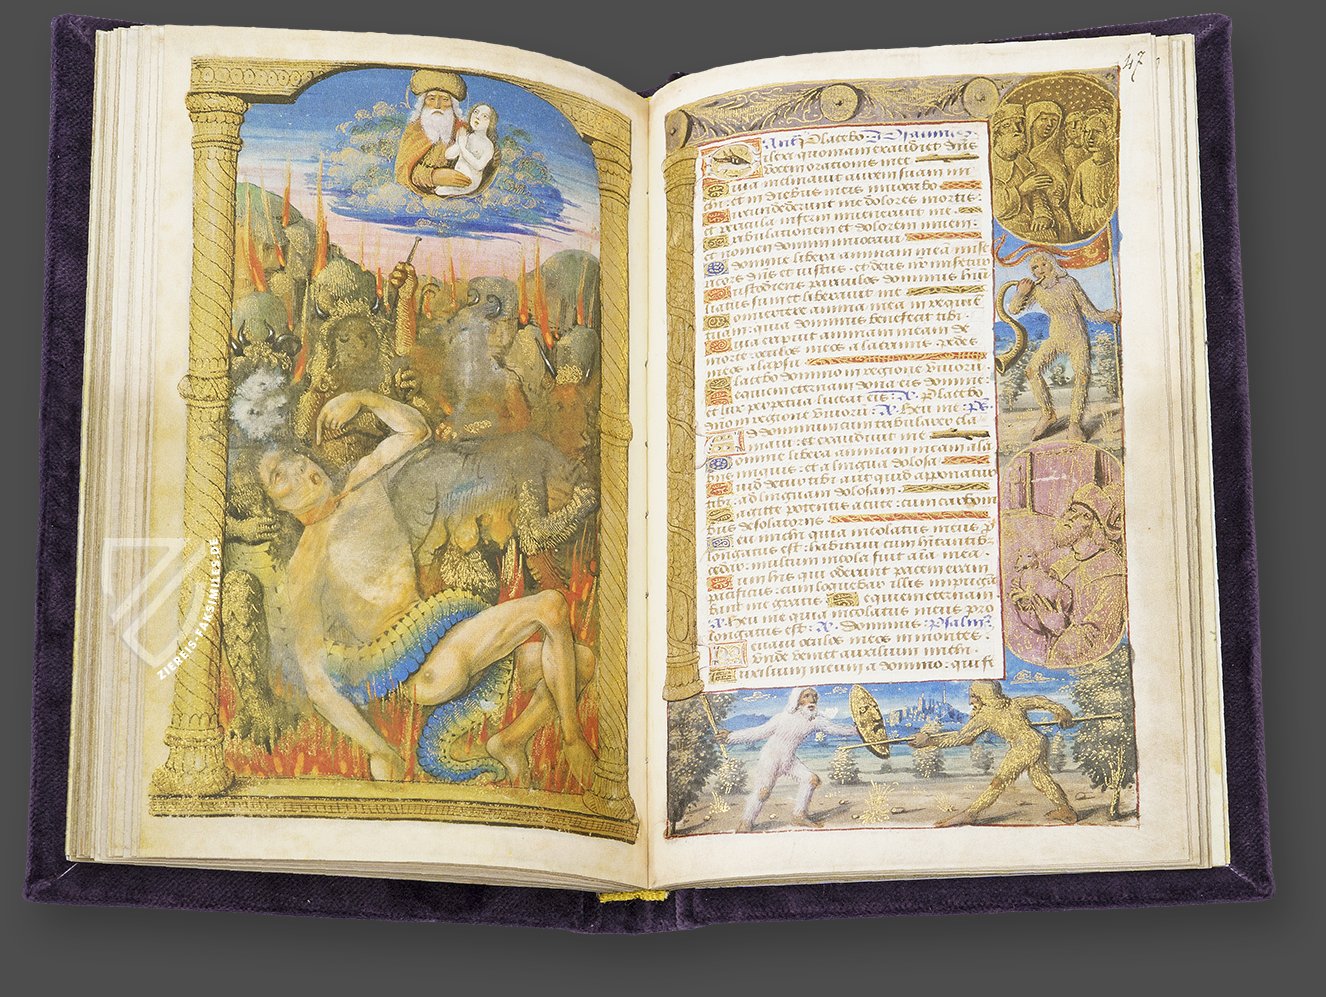 47
Antᵉ Placebo. Psalmus
Dilexi quoniam exaudiet dñs
vocem orationis mee
Quia inclinavit aurem suam mi
chi: et in diebus meis invocabo
Circundederunt me dolores mortis:
et pericula inferni invenerunt me.
Tribulationem et dolorem inveni:
et nomen domini invocavi
O domine libera animam meã mise
ricors dñs et iustus. et deus nr̃ miseretur
Custodiens parvulos dominus hu
liatus sum et liberavit me
Convertere anima mea in requiẽ
tuam: quia dominus benefecit tibi
Quia eripuit animam meam de
morte: oculos meos a lacrimis: pedes
meos a lapsu
Placebo domino in regione vivorũ
Requiem eternam dona eis domine.
et lux perpetua luceat eis: A. Placebo
domino in regione vivorũ: A. Heu me: ps
Ad dominum cum tribularer cla
mavi: et exaudivit me
Domine libera animam meam a la
biis iniquis: et a lingua dolosa.
Quid detur tibi aut quid apponatur
tibi: ad linguam dolosam.
Sagitte potentis acute: cum carboni
bus desolatoriis
Heu michi quia incolatus meus p
longatus est: habitavi cum hĩtantib
cedar: multum incola fuit aĩa mea.
Cum his qui oderunt pacem eram
pacificus: cum loquebar illis impugnã
bant me gratis Requiem eternam
A. Heu me quia incolatus meus pro
longatus est: A. dominus Psalm
Levavi oculos meos in montes.
unde veniet auxilium michi.
Auxilium meum a domino: qui fe
ZIEREIS-FAKSIMILES.DE